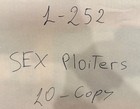 1-252
SEX PLoiTers
20-Copy